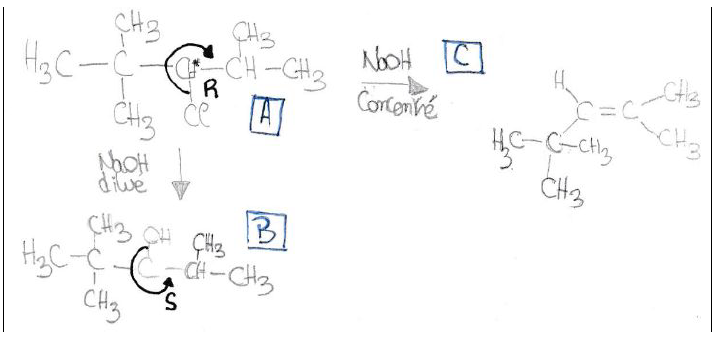 CH3 CH3
H3C - C - CH* - CH - CH3
R
CH3 Cl
A
NaOH
Concentré
C
H
C = C
CH3
CH3
H3C - C - CH3
CH3
NaOH
dilué
B
CH3 OH CH3
H3C - C - C - CH - CH3
CH3
S